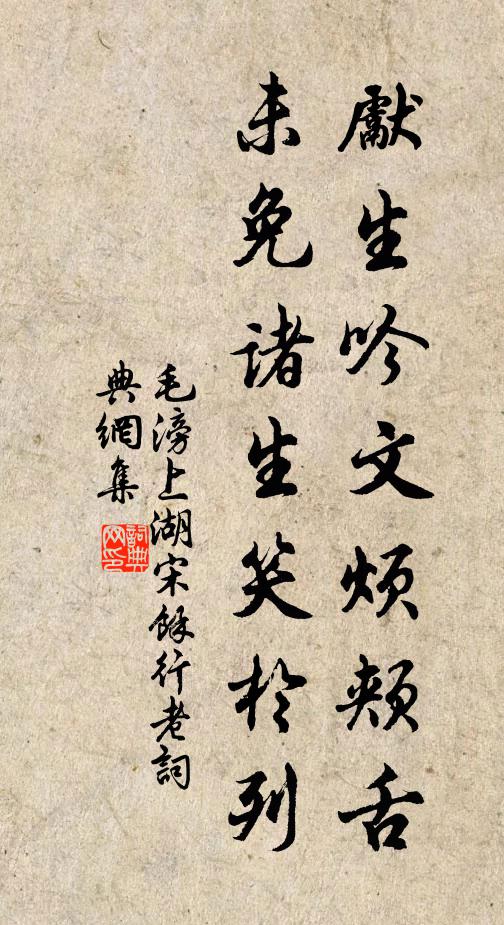 獻生吟文煩頰舌
未免諸生笑於列
毛滂上湖宋餘行老詞
典網集
詞典
网印